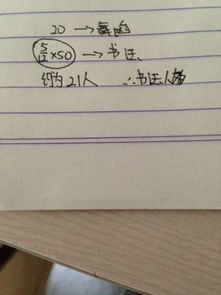 20 → 舞蹈
5/12×50 → 书法
约21人 ∴书法人多